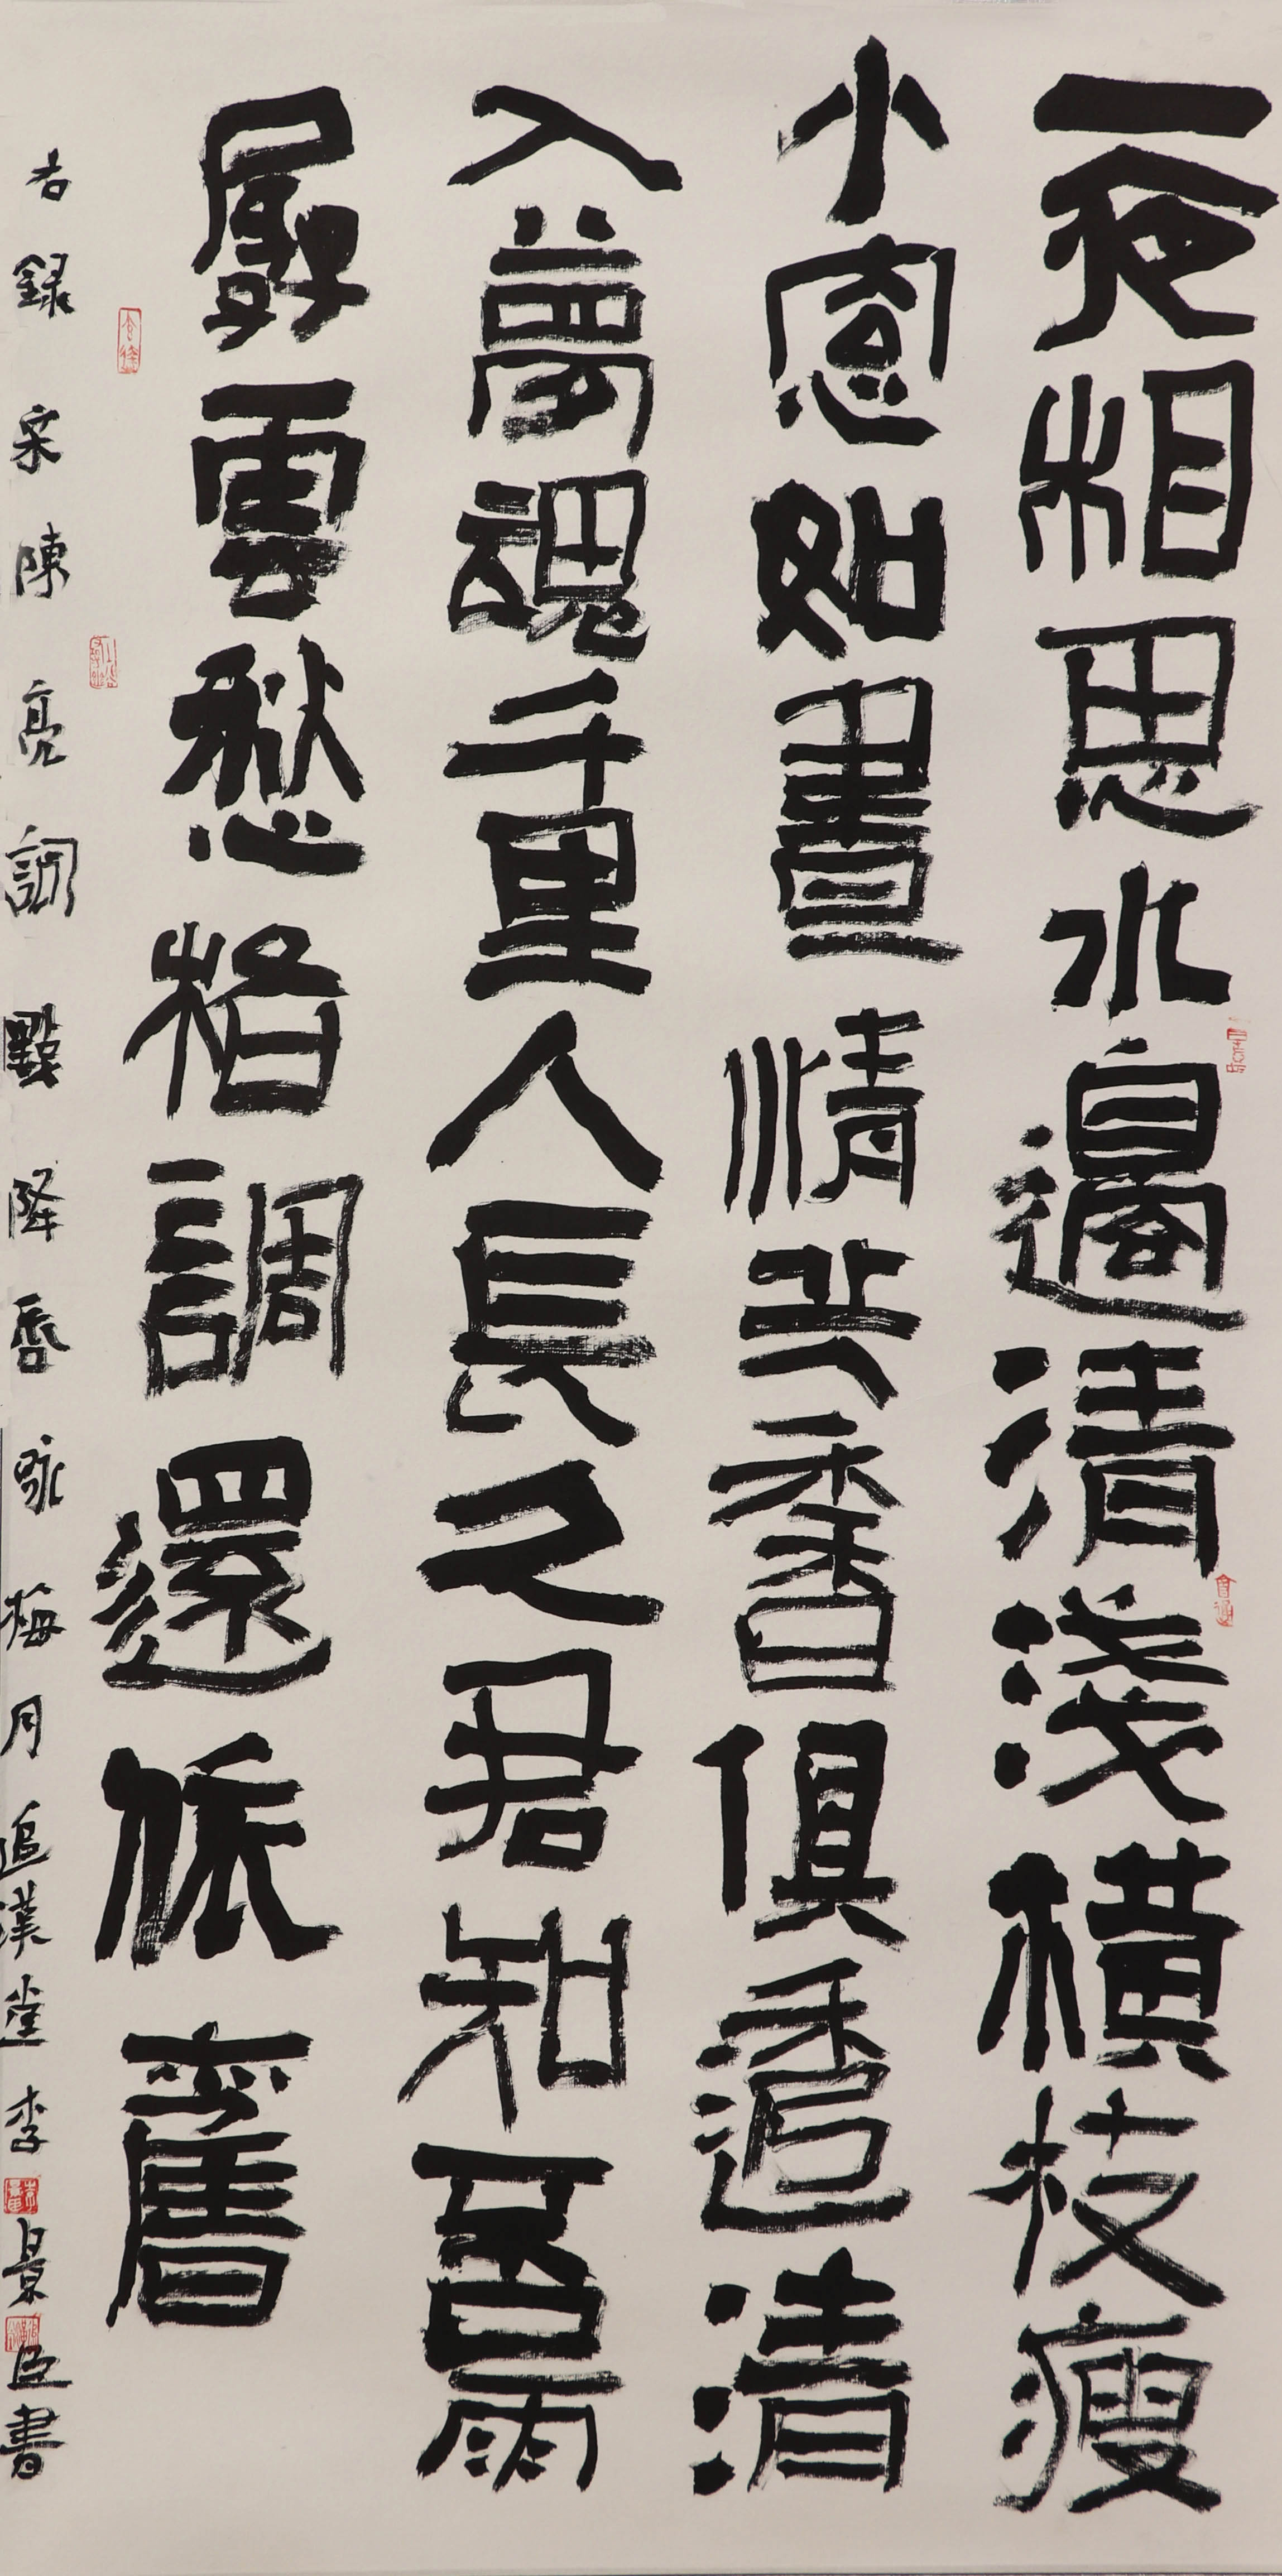 一夜相思水邊清淺橫枝瘦
小窻如晝情共香俱透清
入夢魂千里人長久君知否雨
孱雲愁格調還依舊
右錄宋陳亮詞點降唇咏梅月追漢堂李景臣書